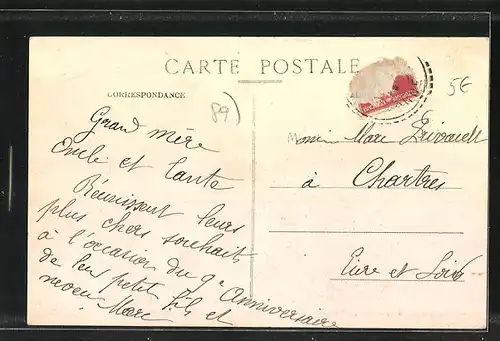 CARTE POSTALE
CORRESPONDANCE
89
5€
Grand mère
Oncle et Tante
Réunissent leurs
plus chers souhait
à l'occasion du 9e Anniversaire
de leur petit fils et
neveu Marc
Monsieur Marc
à Chartres
Eure et Loir